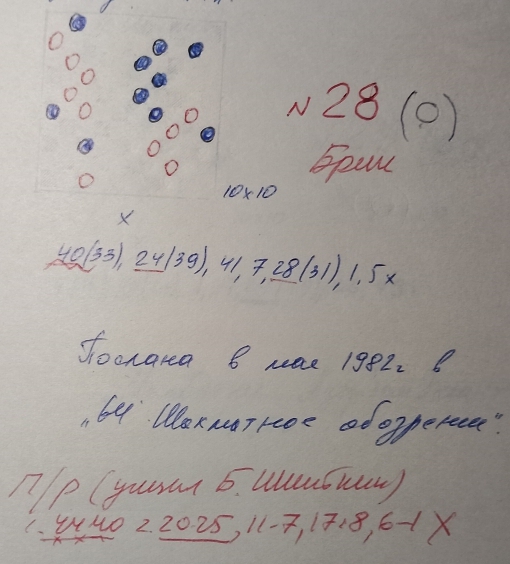 N 28 (O)
Брин
10x10
x
40(33), 24(39), 41, 7, 28(31), 1, 5x
Послана в мае 1982г в
„64 Шахматное обозрение".
П/р (
1. 4440 2. 2025, 11-7, 17:8, 6-1 X